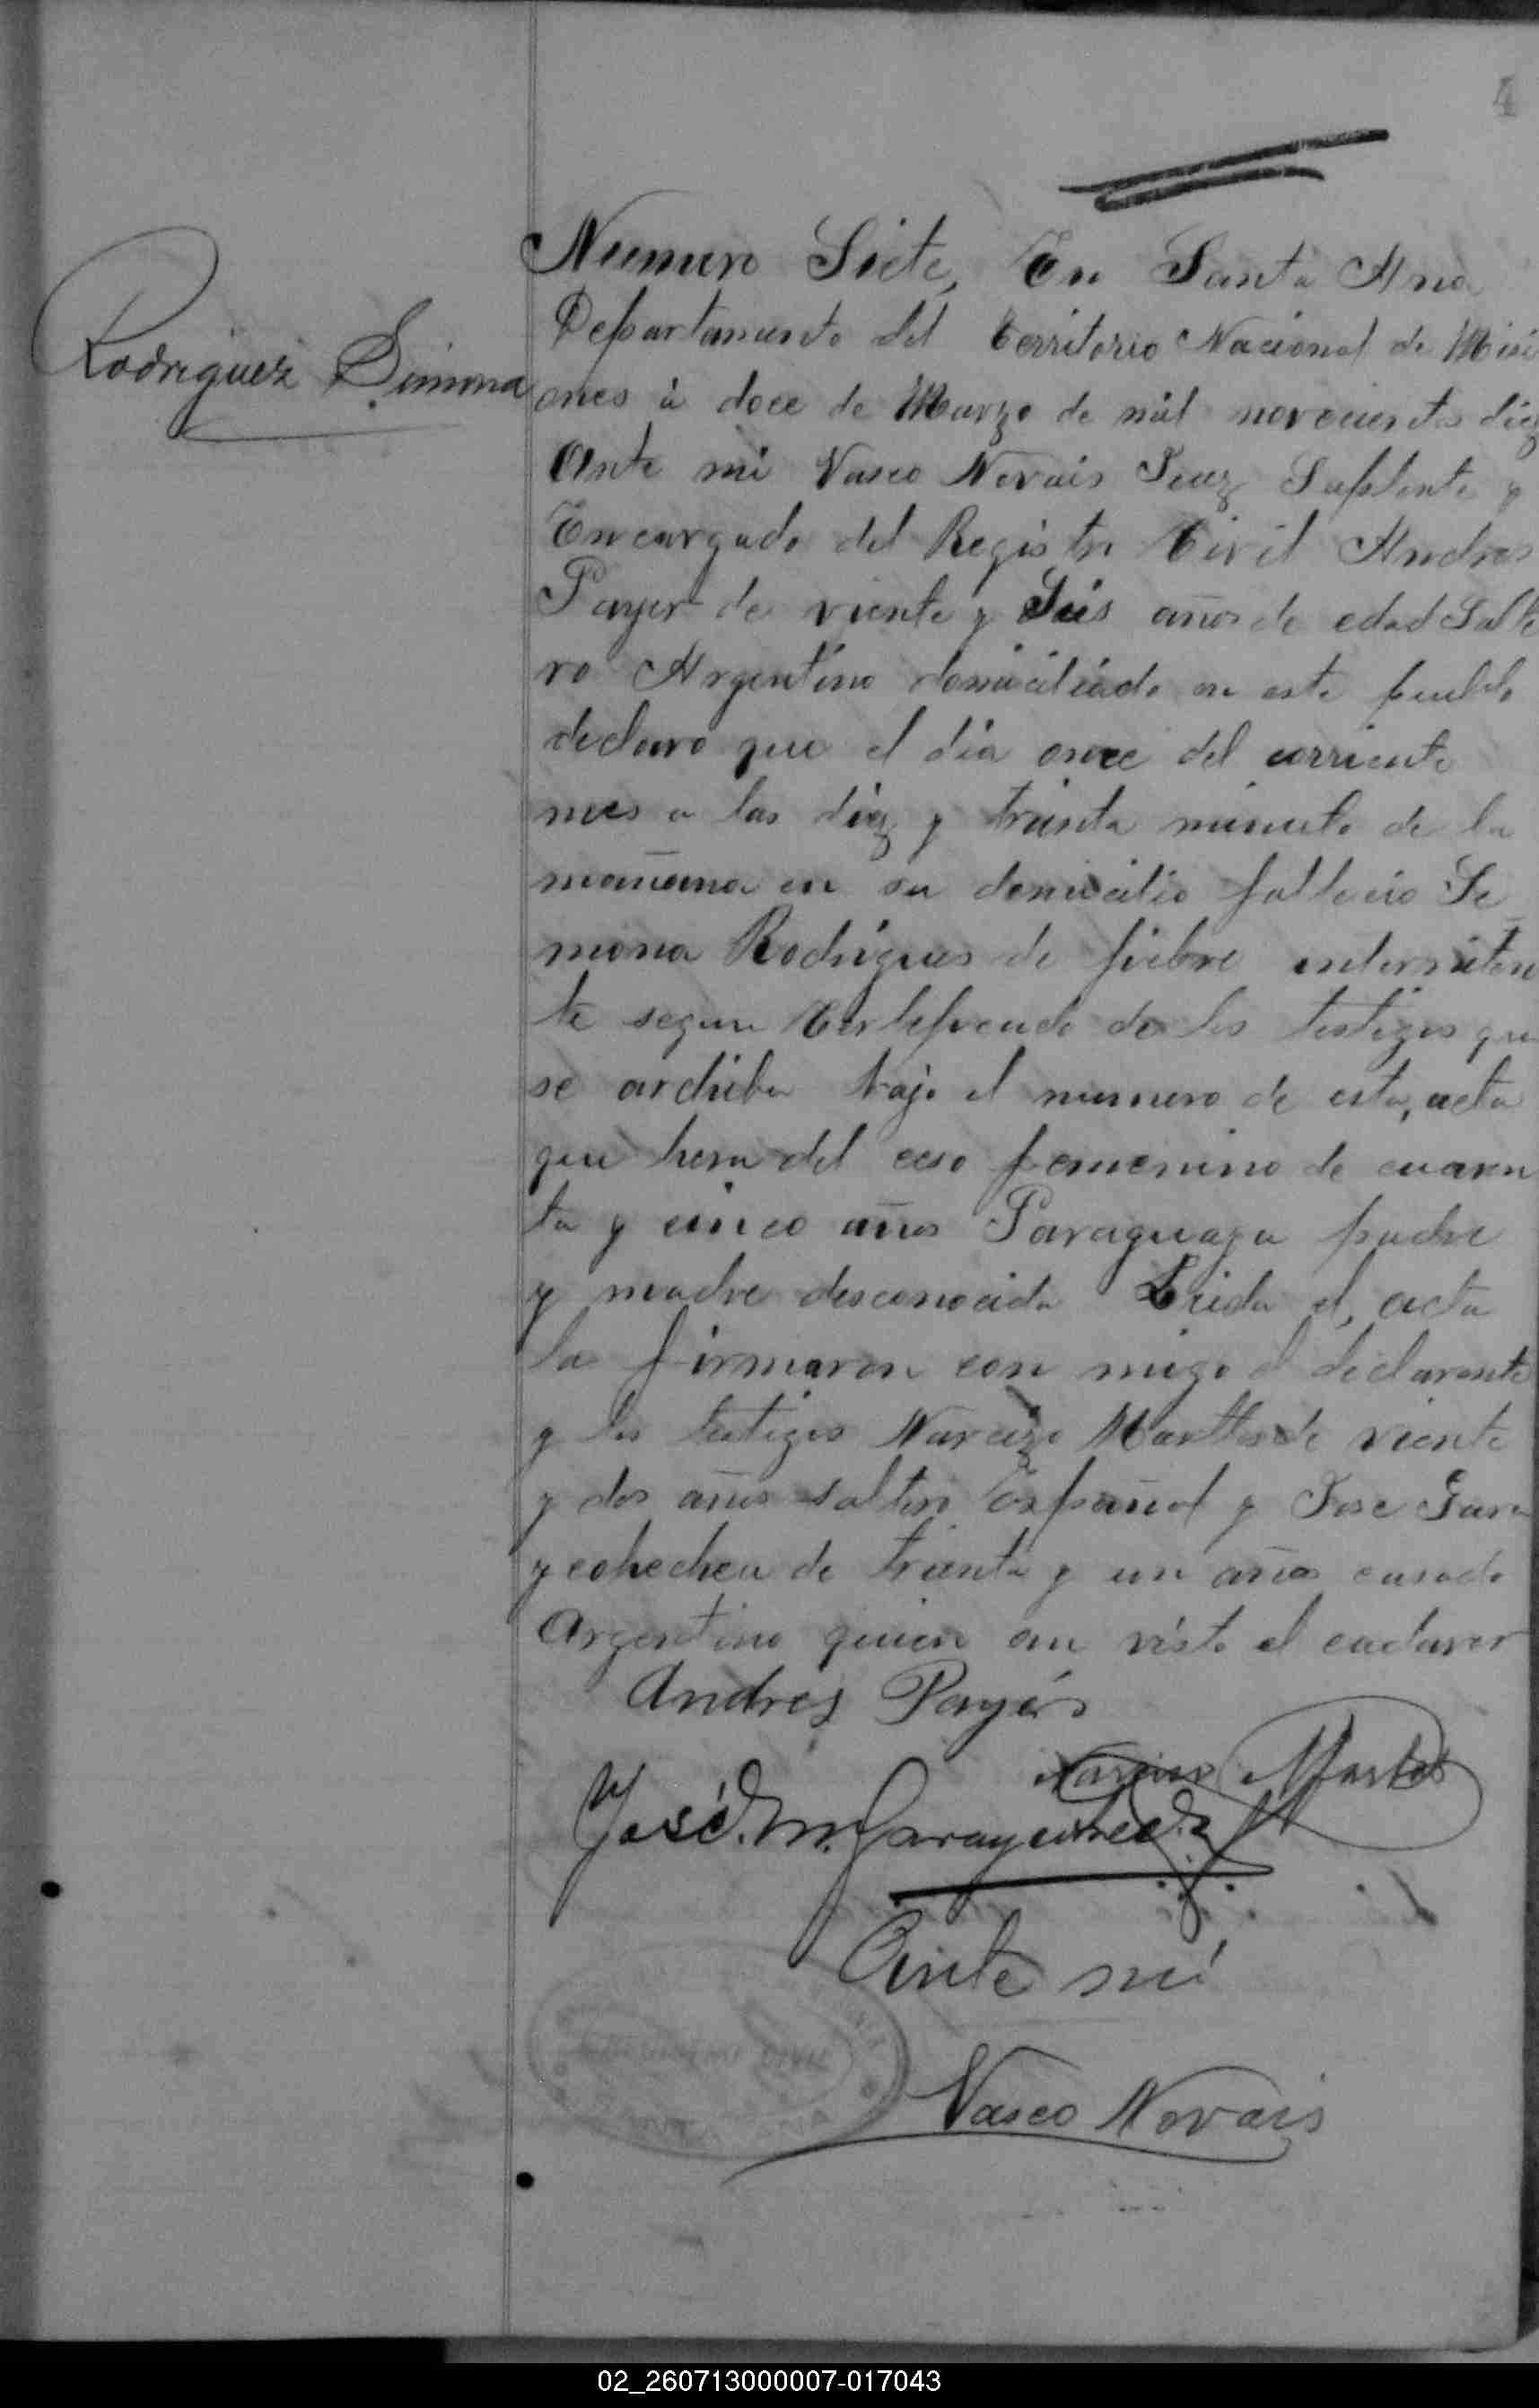 4
Rodriguez Simona
Numero Siete, En Santa Ana
Departamento del Territorio Nacional de Misi
ones á doce de Marzo de mil novecientos diez
Ante mi Vasco Novais Juez Suplente y
Encargado del Registro Civil Andres
Payer de viente y Seis años de edad Solte
ro Argentino domiciliado en este pueblo
declaro que el dia once del corriente
mes a las diez y trienta minuto de la
mañana en su domicilio fallecio Se
mona Rodrigues de fiebre intermiten
te segun Certificado de los testigos que
se archiba bajo el numero de esta, acta
que hera del ceso femenino de cuaren
ta y cinco años Paraguaya padre
y madre desconocida Leida el, acta
la firmaron con migo el declarante
y los testigos Narcizo Martos de viente
y dos años soltero Español y Jose Gara
ycohechea de trienta y un años casado
Argentino quien an visto el cadaver
Andrés Payés
Narciso Martos
José. M. Garaycochea
Ante mi
REGISTRO CIVIL
SANTA ANA
Vasco Novais
02_260713000007-017043